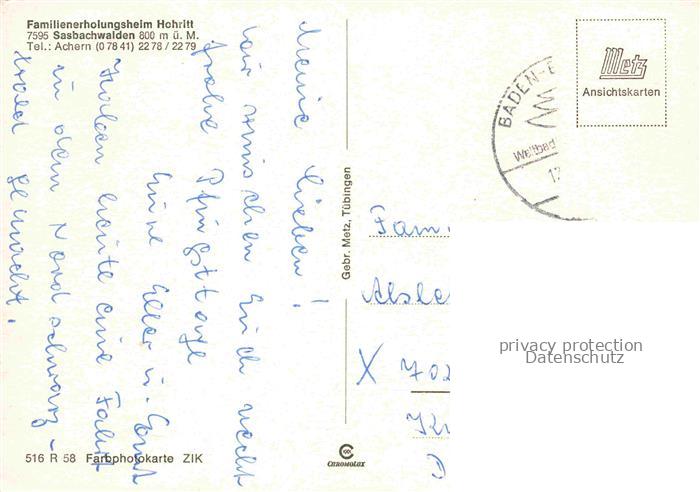 Familienerholungsheim Hohritt
7595 Sasbachwalden 800 m ü. M.
Tel.: Achern (0 78 41) 22 78 / 22 79
Meine Lieben!
wir wünschen Euch recht
frohe Pfingsttage
Eure Ella u. Ernst
Haben heute eine Fahrt
in den Nordschwarz-
wald gemacht.
516 R 58 Farbphotokarte ZIK
Gebr. Metz, Tübingen
CHROMOLUX
Metz
Ansichtskarten
BADEN-B
Weltbad
Fam
X 702
privacy protection
Datenschutz